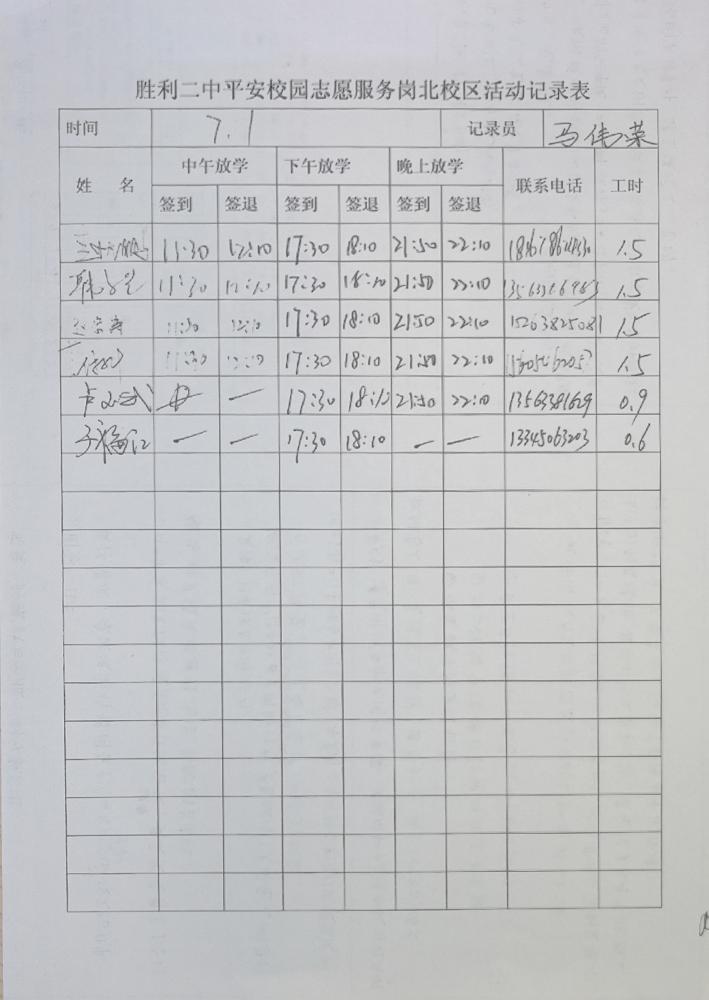 胜利二中平安校园志愿服务岗北校区活动记录表
时间 7.1 记录员 马伟荣
姓名 中午放学 下午放学 晚上放学 联系电话 工时
签到 签退 签到 签退 签到 签退
11:30 12:10 17:30 18:10 21:50 22:10 1.5
11:30 12:10 17:30 18:10 21:50 22:10 1.5
11:30 12:10 17:30 18:10 21:50 22:10 15263825081 1.5
11:30 12:10 17:30 18:10 21:50 22:10 1.5
— 17:30 18:10 21:50 22:10 13563381609 0.9
— — 17:30 18:10 — — 13345063203 0.6